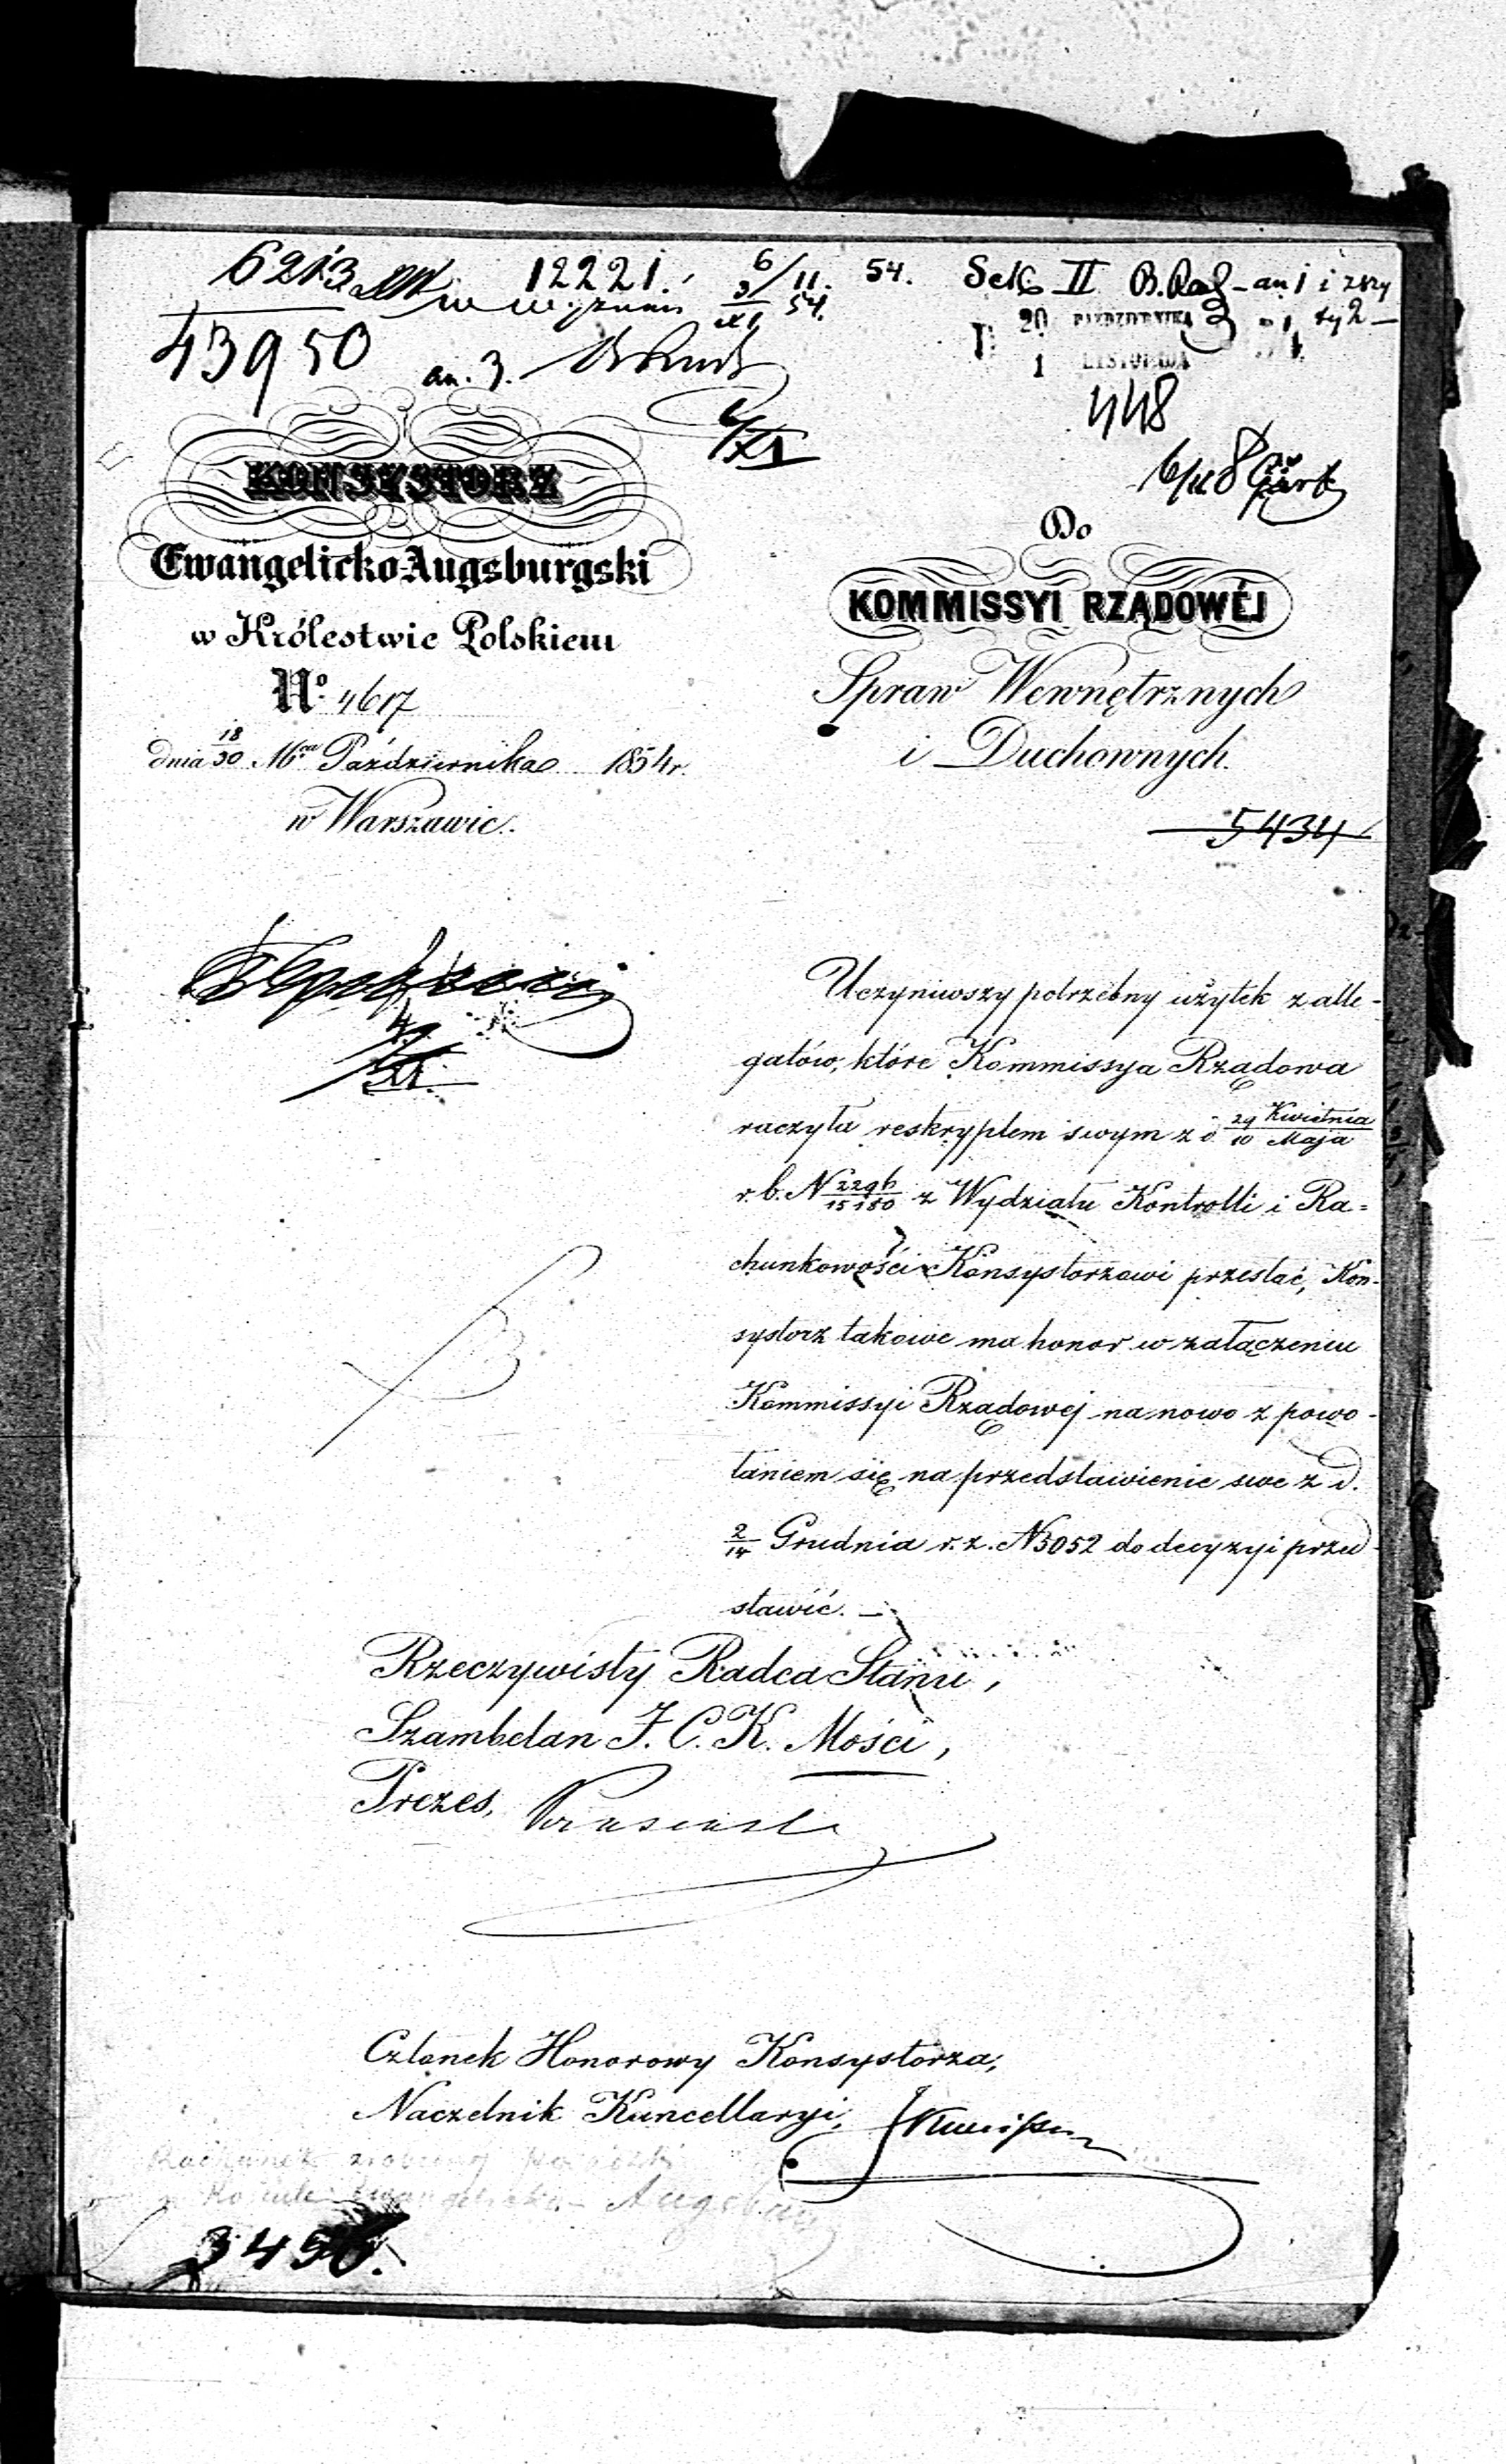 6213 12221. 6/11. 54. Sek II B. Rad - an 1 i zszy
w Wyznań 3/XI 54. ty 2 -
20 PAŹDZIERNIKA
43950 an. 3. 1 LISTOPADA
448
4/XI
6/11 8
KONSYSTORZ
Ewangelicko-Augsburgski
w Królestwie Polskiem
No. 4617
dnia 18/30 Mca Października 1854 r.
w Warszawie.
Do
KOMMISSYI RZĄDOWÉJ
Spraw Wewnętrznych
i Duchownych.
5434
4/XI.
Uczyniwszy potrzebny użytek z alle-
gatów, które Kommissya Rządowa
raczyła reskryptem swym z d 29 Kwietnia/10 Maja
r. b. N 2296/15180 z Wydziału Kontrolli i Ra-
chunkowości Konsystorzowi przesłać, Kon-
systorz takowe ma honor w załączeniu
Kommissyi Rządowej na nowo z powo-
łaniem się na przedstawienie swe z d.
2/14 Grudnia r. z. N 5052 do decyzyi przed-
stawić. —
Rzeczywisty Radca Stanu,
Szambelan J. C. K. Mości,
Prezes,
Członek Honorowy Konsystorza,
Naczelnik Kancellaryi,
Rachunek
Augsburg
345